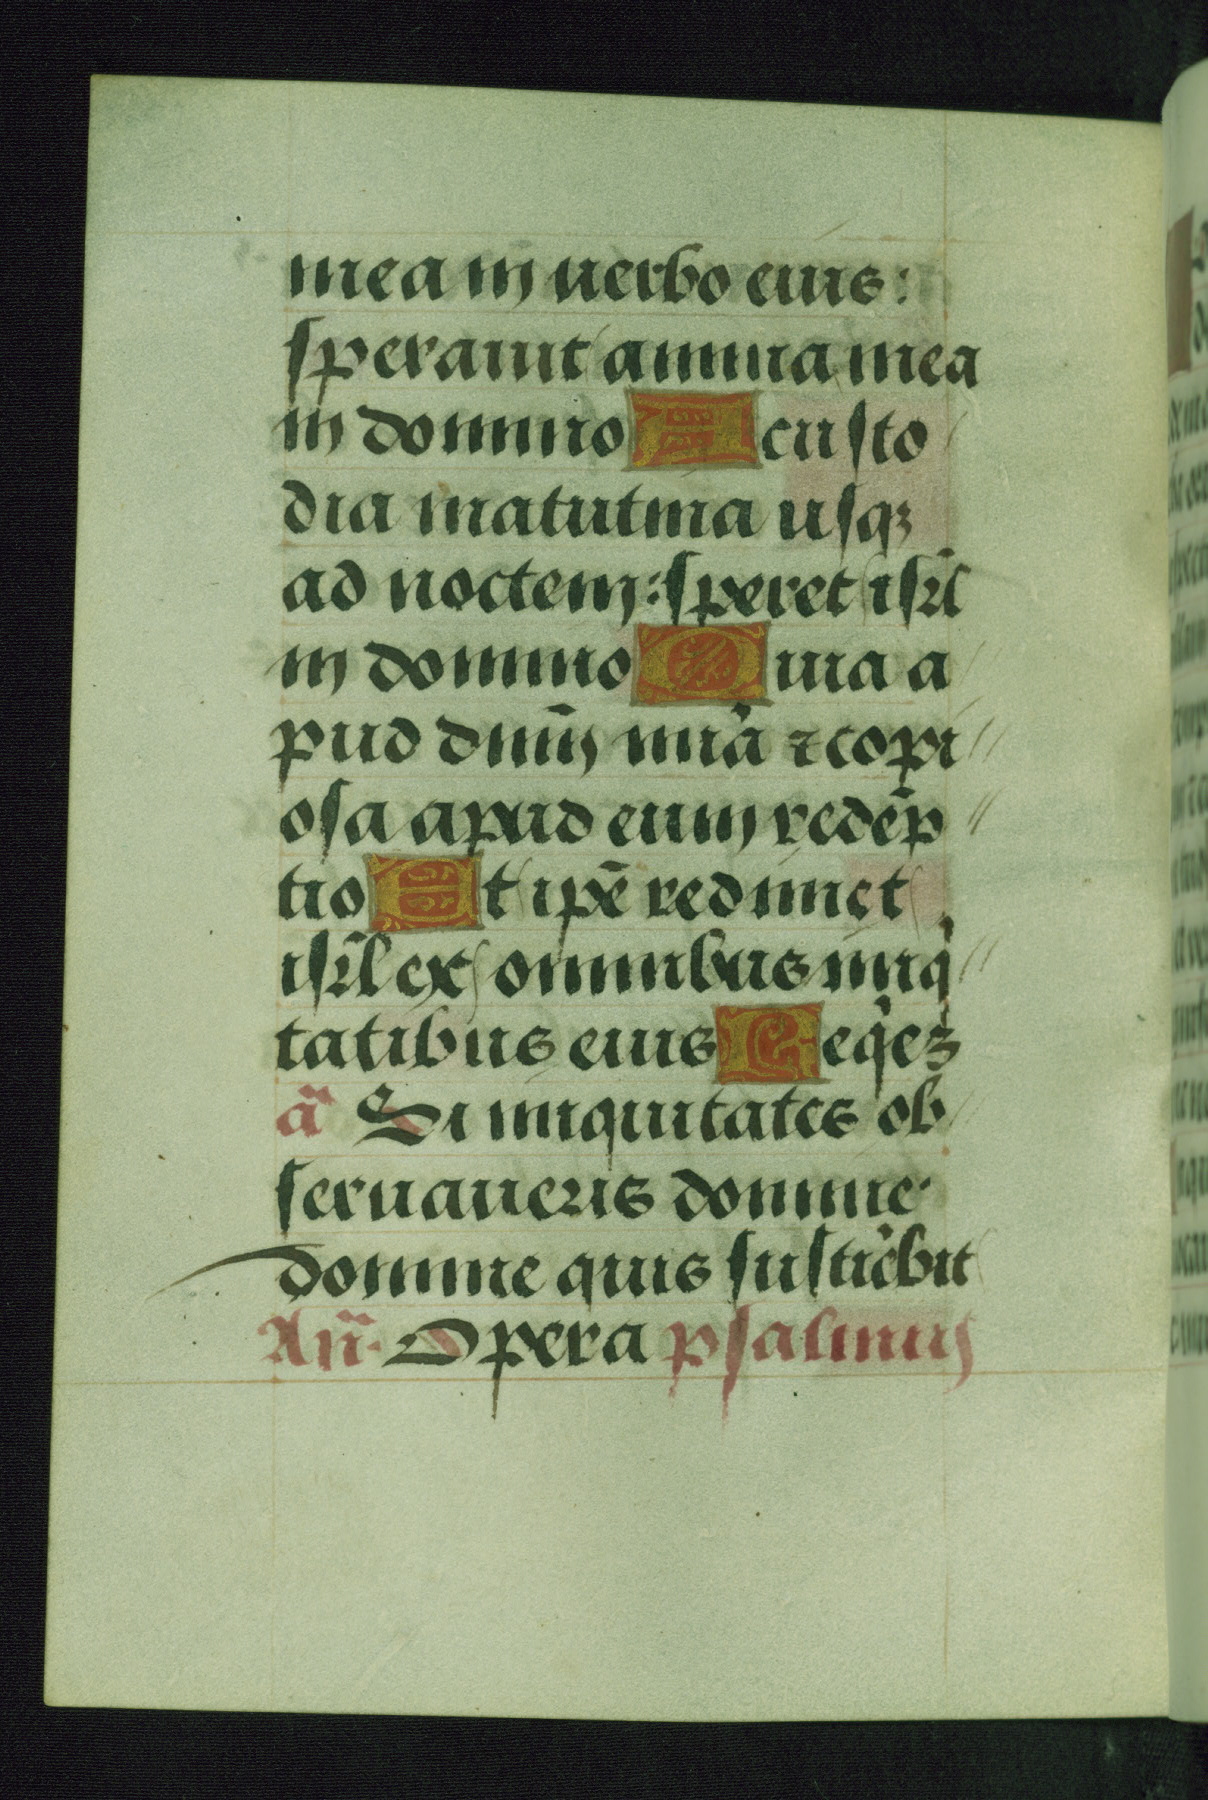 mea in uerbo eius:
sperauit anima mea
in domino A custo
dia matutina usqꝫ
ad noctem: speret isrl̄
in domino Quia a
pud dnūm mīa ⁊ copi
osa apud eum redēp
tio Et ipē redimet
isrl̄ ex omnibus iniq
tatibus eius Reqeꝫ
ā Si iniquitates ob
seruaueris domine·
domine quis sustīebit
An̄· Opera psalmus